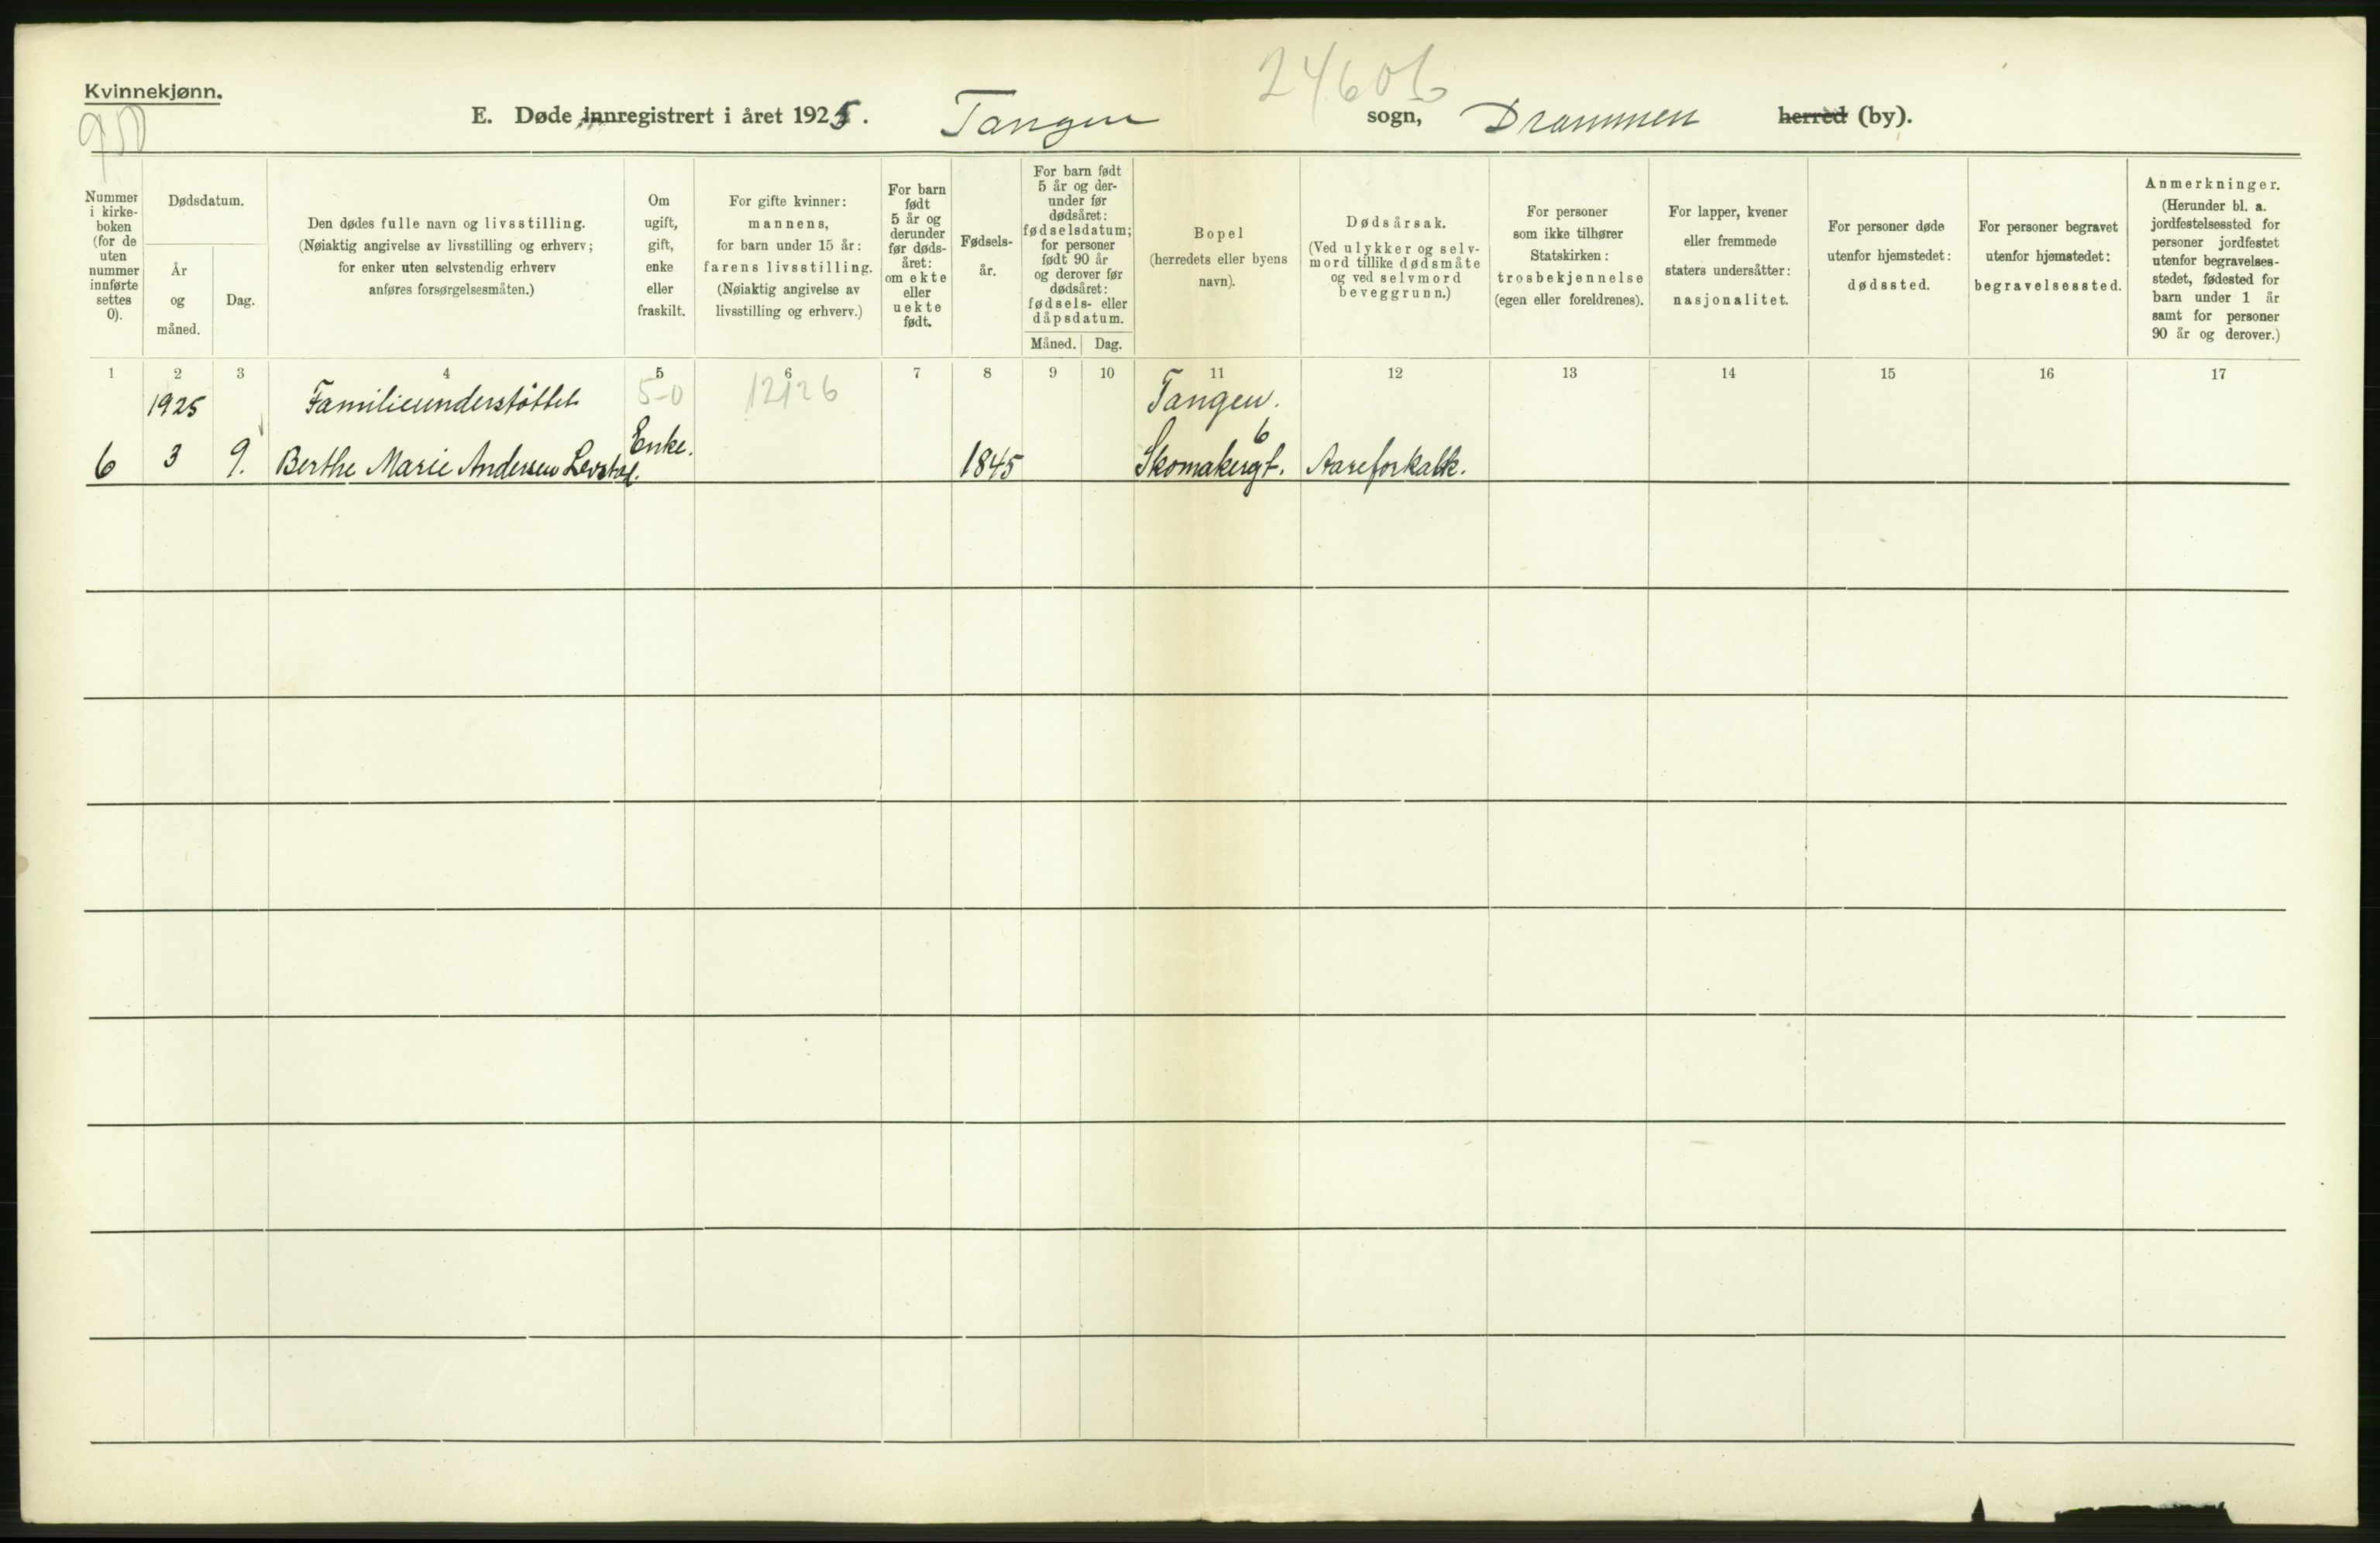 Kvinnekjønn.
950
24606
E. Døde innregistrert i året 1925. Tangen sogn, Drammen herred (by).
Nummer
i kirke-
boken
(for de
uten
nummer
innførte
settes
0).
Dødsdatum.
År
og
måned.
Dag.
Den dødes fulle navn og livsstilling.
(Nøiaktig angivelse av livsstilling og erhverv;
for enker uten selvstendig erhverv
anføres forsørgelsesmåten.)
Om
ugift,
gift,
enke
eller
fraskilt.
For gifte kvinner:
mannens,
for barn under 15 år:
farens livsstilling.
(Nøiaktig angivelse av
livsstilling og erhverv.)
For barn
født
5 år og
derunder
før døds-
året:
om ekte
eller
uekte
født.
Fødsels-
år.
For barn født
5 år og der-
under før
dødsåret:
fødselsdatum;
for personer
født 90 år
og derover før
dødsåret:
fødsels- eller
dåpsdatum.
Måned. Dag.
Bopel
(herredets eller byens
navn).
Dødsårsak.
(Ved ulykker og selv-
mord tillike dødsmåte
og ved selvmord
beveggrunn.)
For personer
som ikke tilhører
Statskirken:
trosbekjennelse
(egen eller foreldrenes).
For lapper, kvener
eller fremmede
staters undersåtter:
nasjonalitet.
For personer døde
utenfor hjemstedet:
dødssted.
For personer begravet
utenfor hjemstedet:
begravelsessted.
Anmerkninger.
(Herunder bl. a.
jordfestelsessted for
personer jordfestet
utenfor begravelses-
stedet, fødested for
barn under 1 år
samt for personer
90 år og derover.)
1 2 3 4 5 6 7 8 9 10 11 12 13 14 15 16 17
1925 Familieunderstøttet 5-0 12126 Tangen.
6 3 9. Berthe Marie Andersen Enke. 1845 Skomakergt. 6 Aareforkalk.